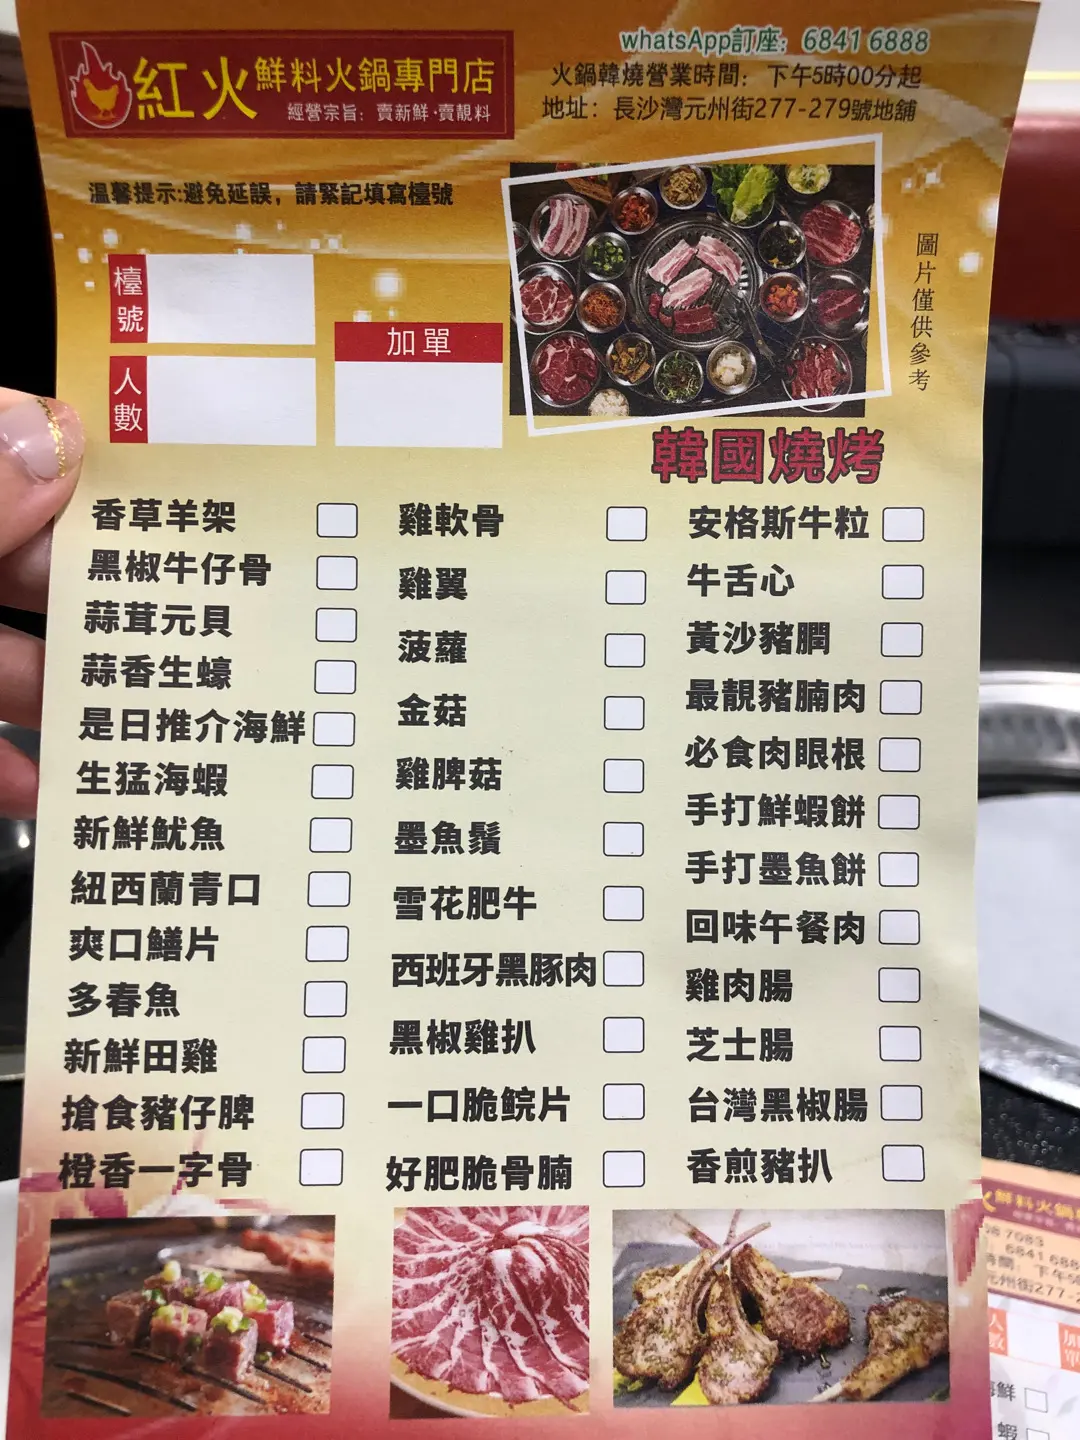 紅火鮮料火鍋專門店
經營宗旨：賣新鮮·賣靚料
whatsApp訂座：6841 6888
火鍋韓燒營業時間：下午5時00分起
地址：長沙灣元州街277-279號地舖
溫馨提示:避免延誤，請緊記填寫檯號
檯號
人數
加單
圖片僅供參考
韓國燒烤
香草羊架
黑椒牛仔骨
蒜茸元貝
蒜香生蠔
是日推介海鮮
生猛海蝦
新鮮魷魚
紐西蘭青口
爽口鱔片
多春魚
新鮮田雞
搶食豬仔脾
橙香一字骨
雞軟骨
雞翼
菠蘿
金菇
雞脾菇
墨魚鬚
雪花肥牛
西班牙黑豚肉
黑椒雞扒
一口脆鯇片
好肥脆骨腩
安格斯牛粒
牛舌心
黃沙豬膶
最靚豬腩肉
必食肉眼根
手打鮮蝦餅
手打墨魚餅
回味午餐肉
雞肉腸
芝士腸
台灣黑椒腸
香煎豬扒
火鮮料火鍋
7083
6841 688
時間：下午5
元州街277-2
人數
加單
海鮮
蝦